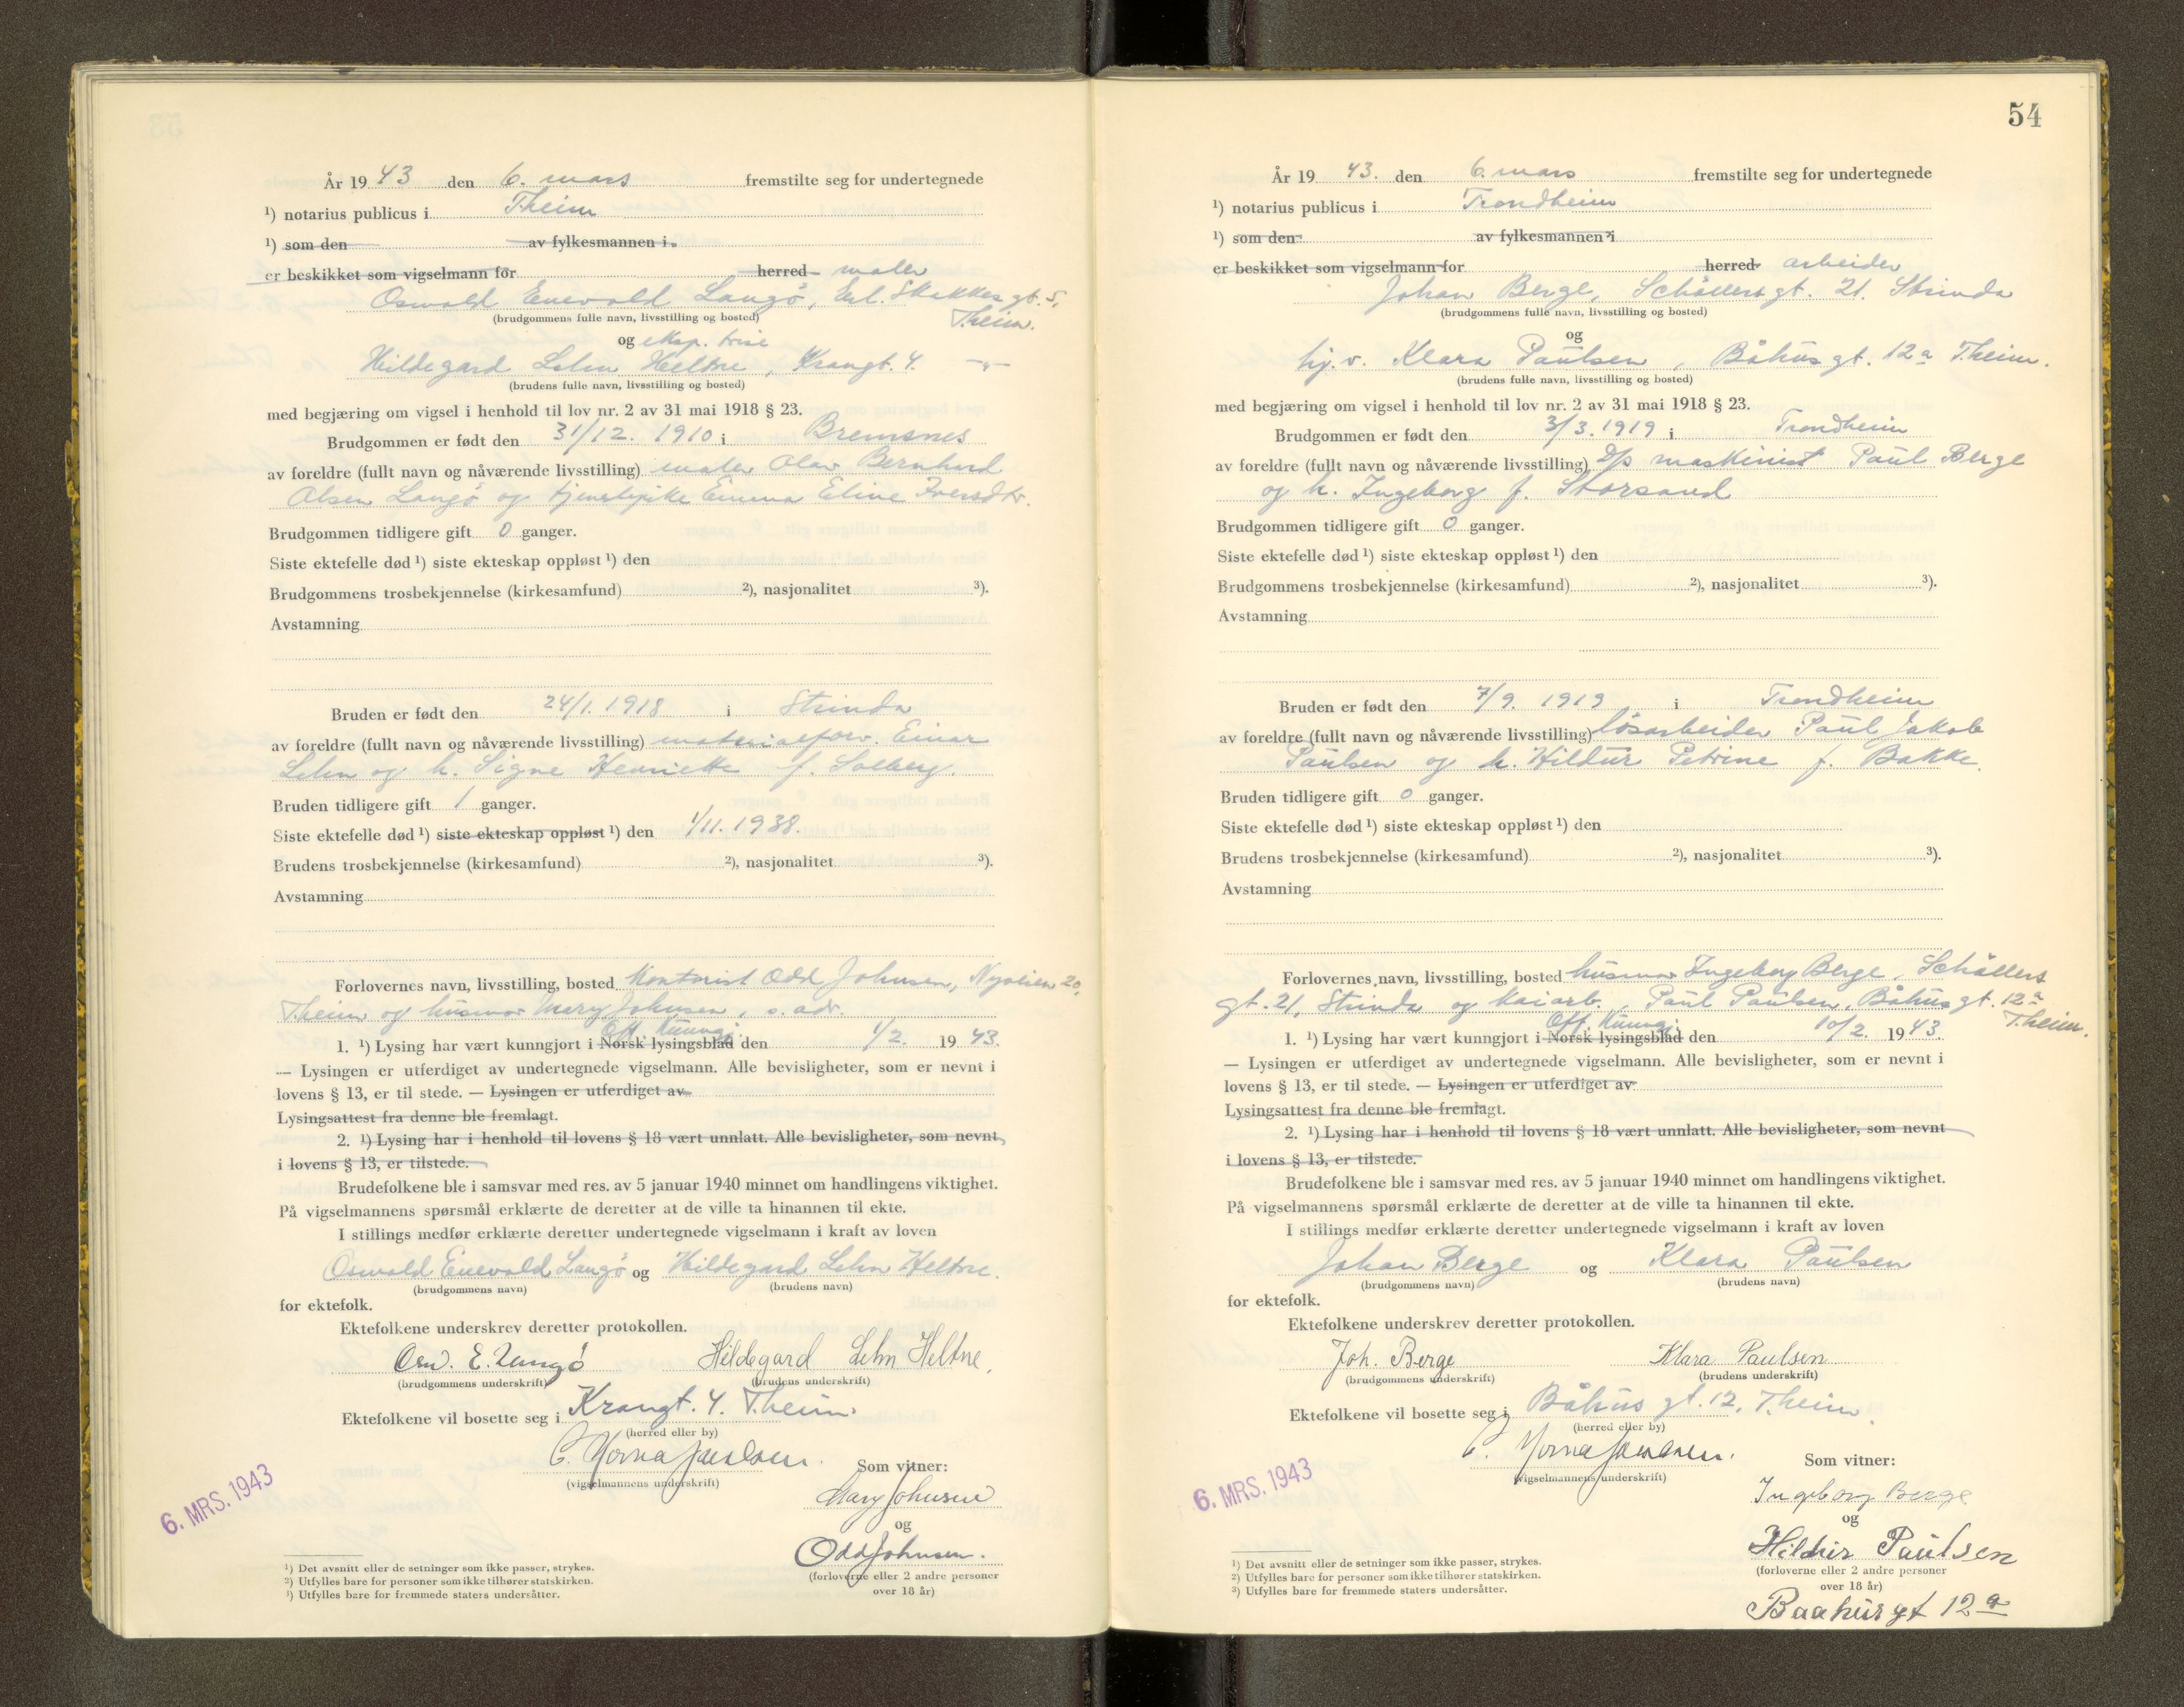 År 19 43 den 6. mars fremstilte seg for undertegnede
¹) notarius publicus i T.heim
¹) som den av fylkesmannen i
er beskikket som vigselmann for herred maler
Oswald Enevald Langö, Erl. Skakkes gt. 5,
(brudgommens fulle navn, livsstilling og bosted) T.heim.
og eksp. trise
Hildegard Lehn Heltne, Krangt. 4. —"—
(brudens fulle navn, livsstilling og bosted)
med begjæring om vigsel i henhold til lov nr. 2 av 31 mai 1918 § 23.
Brudgommen er født den 31/12. 1910 i Bremsnes
av foreldre (fullt navn og nåværende livsstilling) maler Olav Bernhard
Olsen Langö og tjenestepike Emma Eline Iversdtr.
Brudgommen tidligere gift 0 ganger.
Siste ektefelle død ¹) siste ekteskap oppløst ¹) den
Brudgommens trosbekjennelse (kirkesamfund) ²), nasjonalitet ³).
Avstamning
Bruden er født den 24/1. 1918 i Strinda
av foreldre (fullt navn og nåværende livsstilling) materialforv. Einar
Lehn og h. Signe Henriette f. Solberg.
Bruden tidligere gift 1 ganger.
Siste ektefelle død ¹) siste ekteskap oppløst ¹) den 1/11. 1938.
Brudens trosbekjennelse (kirkesamfund) ²), nasjonalitet ³).
Avstamning
Forlovernes navn, livsstilling, bosted Kontorist Odd Johnsen, 20,
T.heim og husmor Mary Johnsen, s. adr.
Off. Kunngj.
1. ¹) Lysing har vært kunngjort i Norsk lysingsblad den 1/2. 19 43.
— Lysingen er utferdiget av undertegnede vigselmann. Alle bevisligheter, som er nevnt i
lovens § 13, er til stede. — Lysingen er utferdiget av
Lysingsattest fra denne ble fremlagt.
2. ¹) Lysing har i henhold til lovens § 18 vært unnlatt. Alle bevisligheter, som nevnt
i lovens § 13, er tilstede.
Brudefolkene ble i samsvar med res. av 5 januar 1940 minnet om handlingens viktighet.
På vigselmannens spørsmål erklærte de deretter at de ville ta hinannen til ekte.
I stillings medfør erklærte deretter undertegnede vigselmann i kraft av loven
Oswald Enevald Langö og Hildegard Lehn Heltne.
(brudgommens navn) (brudens navn)
for ektefolk.
Ektefolkene underskrev deretter protokollen.
Osw. E. Langö Hildegard Lehn Heltne.
(brudgommens underskrift) (brudens underskrift)
Ektefolkene vil bosette seg i Krangt. 4. T.heim.
(herred eller by)
(vigselmannens underskrift)
Som vitner:
6. MRS. 1943
Mary Johnsen
og
Odd Johnsen.
(forloverne eller 2 andre personer
over 18 år)
¹) Det avsnitt eller de setninger som ikke passer, strykes.
²) Utfylles bare for personer som ikke tilhører statskirken.
³) Utfylles bare for fremmede staters undersåtter.
54
År 19 43. den 6. mars fremstilte seg for undertegnede
¹) notarius publicus i Trondheim
¹) som den av fylkesmannen i
er beskikket som vigselmann for herred arbeider
Johan Berge, Schøllers gt. 21. Strinda
(brudgommens fulle navn, livsstilling og bosted)
og
hj. v. Klara Paulsen, Båhus gt. 12a T.heim.
(brudens fulle navn, livsstilling og bosted)
med begjæring om vigsel i henhold til lov nr. 2 av 31 mai 1918 § 23.
Brudgommen er født den 3/3. 1919 i Trondheim
av foreldre (fullt navn og nåværende livsstilling) D/s maskinist Paul Berge
og h. Ingeborg f. Storsand
Brudgommen tidligere gift 0 ganger.
Siste ektefelle død ¹) siste ekteskap oppløst ¹) den
Brudgommens trosbekjennelse (kirkesamfund) ²), nasjonalitet ³).
Avstamning
Bruden er født den 7/9. 1919 i Trondheim
av foreldre (fullt navn og nåværende livsstilling) løsarbeider Paul Jakob
Paulsen og h. Hildur Petrine f. Bakke.
Bruden tidligere gift 0 ganger.
Siste ektefelle død ¹) siste ekteskap oppløst ¹) den
Brudens trosbekjennelse (kirkesamfund) ²), nasjonalitet ³).
Avstamning
Forlovernes navn, livsstilling, bosted husmor Ingeborg Berge, Schøllers
gt. 21, Strinda og kaiarb. Paul Paulsen, Båhus gt. 12a
Off. Kunngj. T.heim.
1. ¹) Lysing har vært kunngjort i Norsk lysingsblad den 10/2. 19 43.
— Lysingen er utferdiget av undertegnede vigselmann. Alle bevisligheter, som er nevnt i
lovens § 13, er til stede. — Lysingen er utferdiget av
Lysingsattest fra denne ble fremlagt.
2. ¹) Lysing har i henhold til lovens § 18 vært unnlatt. Alle bevisligheter, som nevnt
i lovens § 13, er tilstede.
Brudefolkene ble i samsvar med res. av 5 januar 1940 minnet om handlingens viktighet.
På vigselmannens spørsmål erklærte de deretter at de ville ta hinannen til ekte.
I stillings medfør erklærte deretter undertegnede vigselmann i kraft av loven
Johan Berge og Klara Paulsen
(brudgommens navn) (brudens navn)
for ektefolk.
Ektefolkene underskrev deretter protokollen.
Joh. Berge Klara Paulsen
(brudgommens underskrift) (brudens underskrift)
Ektefolkene vil bosette seg i Båhus gt. 12, T.heim.
(herred eller by)
(vigselmannens underskrift)
Som vitner:
6. MRS. 1943
Ingeborg Berge
og
Hildur Paulsen
(forloverne eller 2 andre personer
over 18 år)
Baahus gt 12a
¹) Det avsnitt eller de setninger som ikke passer, strykes.
²) Utfylles bare for personer som ikke tilhører statskirken.
³) Utfylles bare for fremmede staters undersåtter.